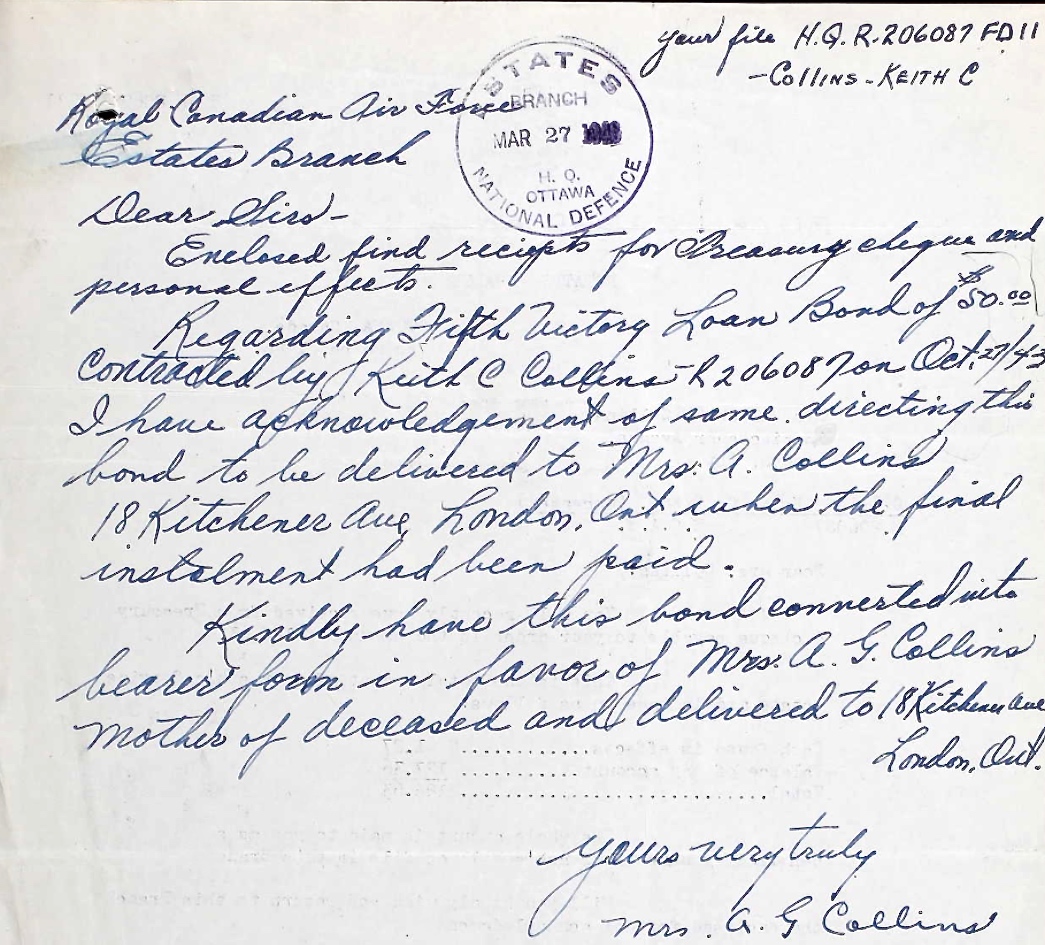 your file H.Q. R.206087 FD11
- Collins - KEITH C
ESTATES
BRANCH
MAR 27
H. Q.
OTTAWA
NATIONAL DEFENCE
Royal Canadian Air Force
Estates Branch
Dear Sirs -
Enclosed find recipts for Treasury cheque and
personal effects.
Regarding Fifth Victory Loan Bond of $50.00
contracted by Keith C Collins - R206087 on Oct. 27/43
I have acknowledgement of same. directing this
bond to be delivered to Mrs. A. Collins
18 Kitchener Ave, London, Ont when the final
instalment had been paid.
Kindly have this bond converted into
bearer form in favor of Mrs. A. G. Collins
Mother of deceased and delivered to 18 Kitchener Ave
London, Ont.
Yours very truly
Mrs. A G Collins